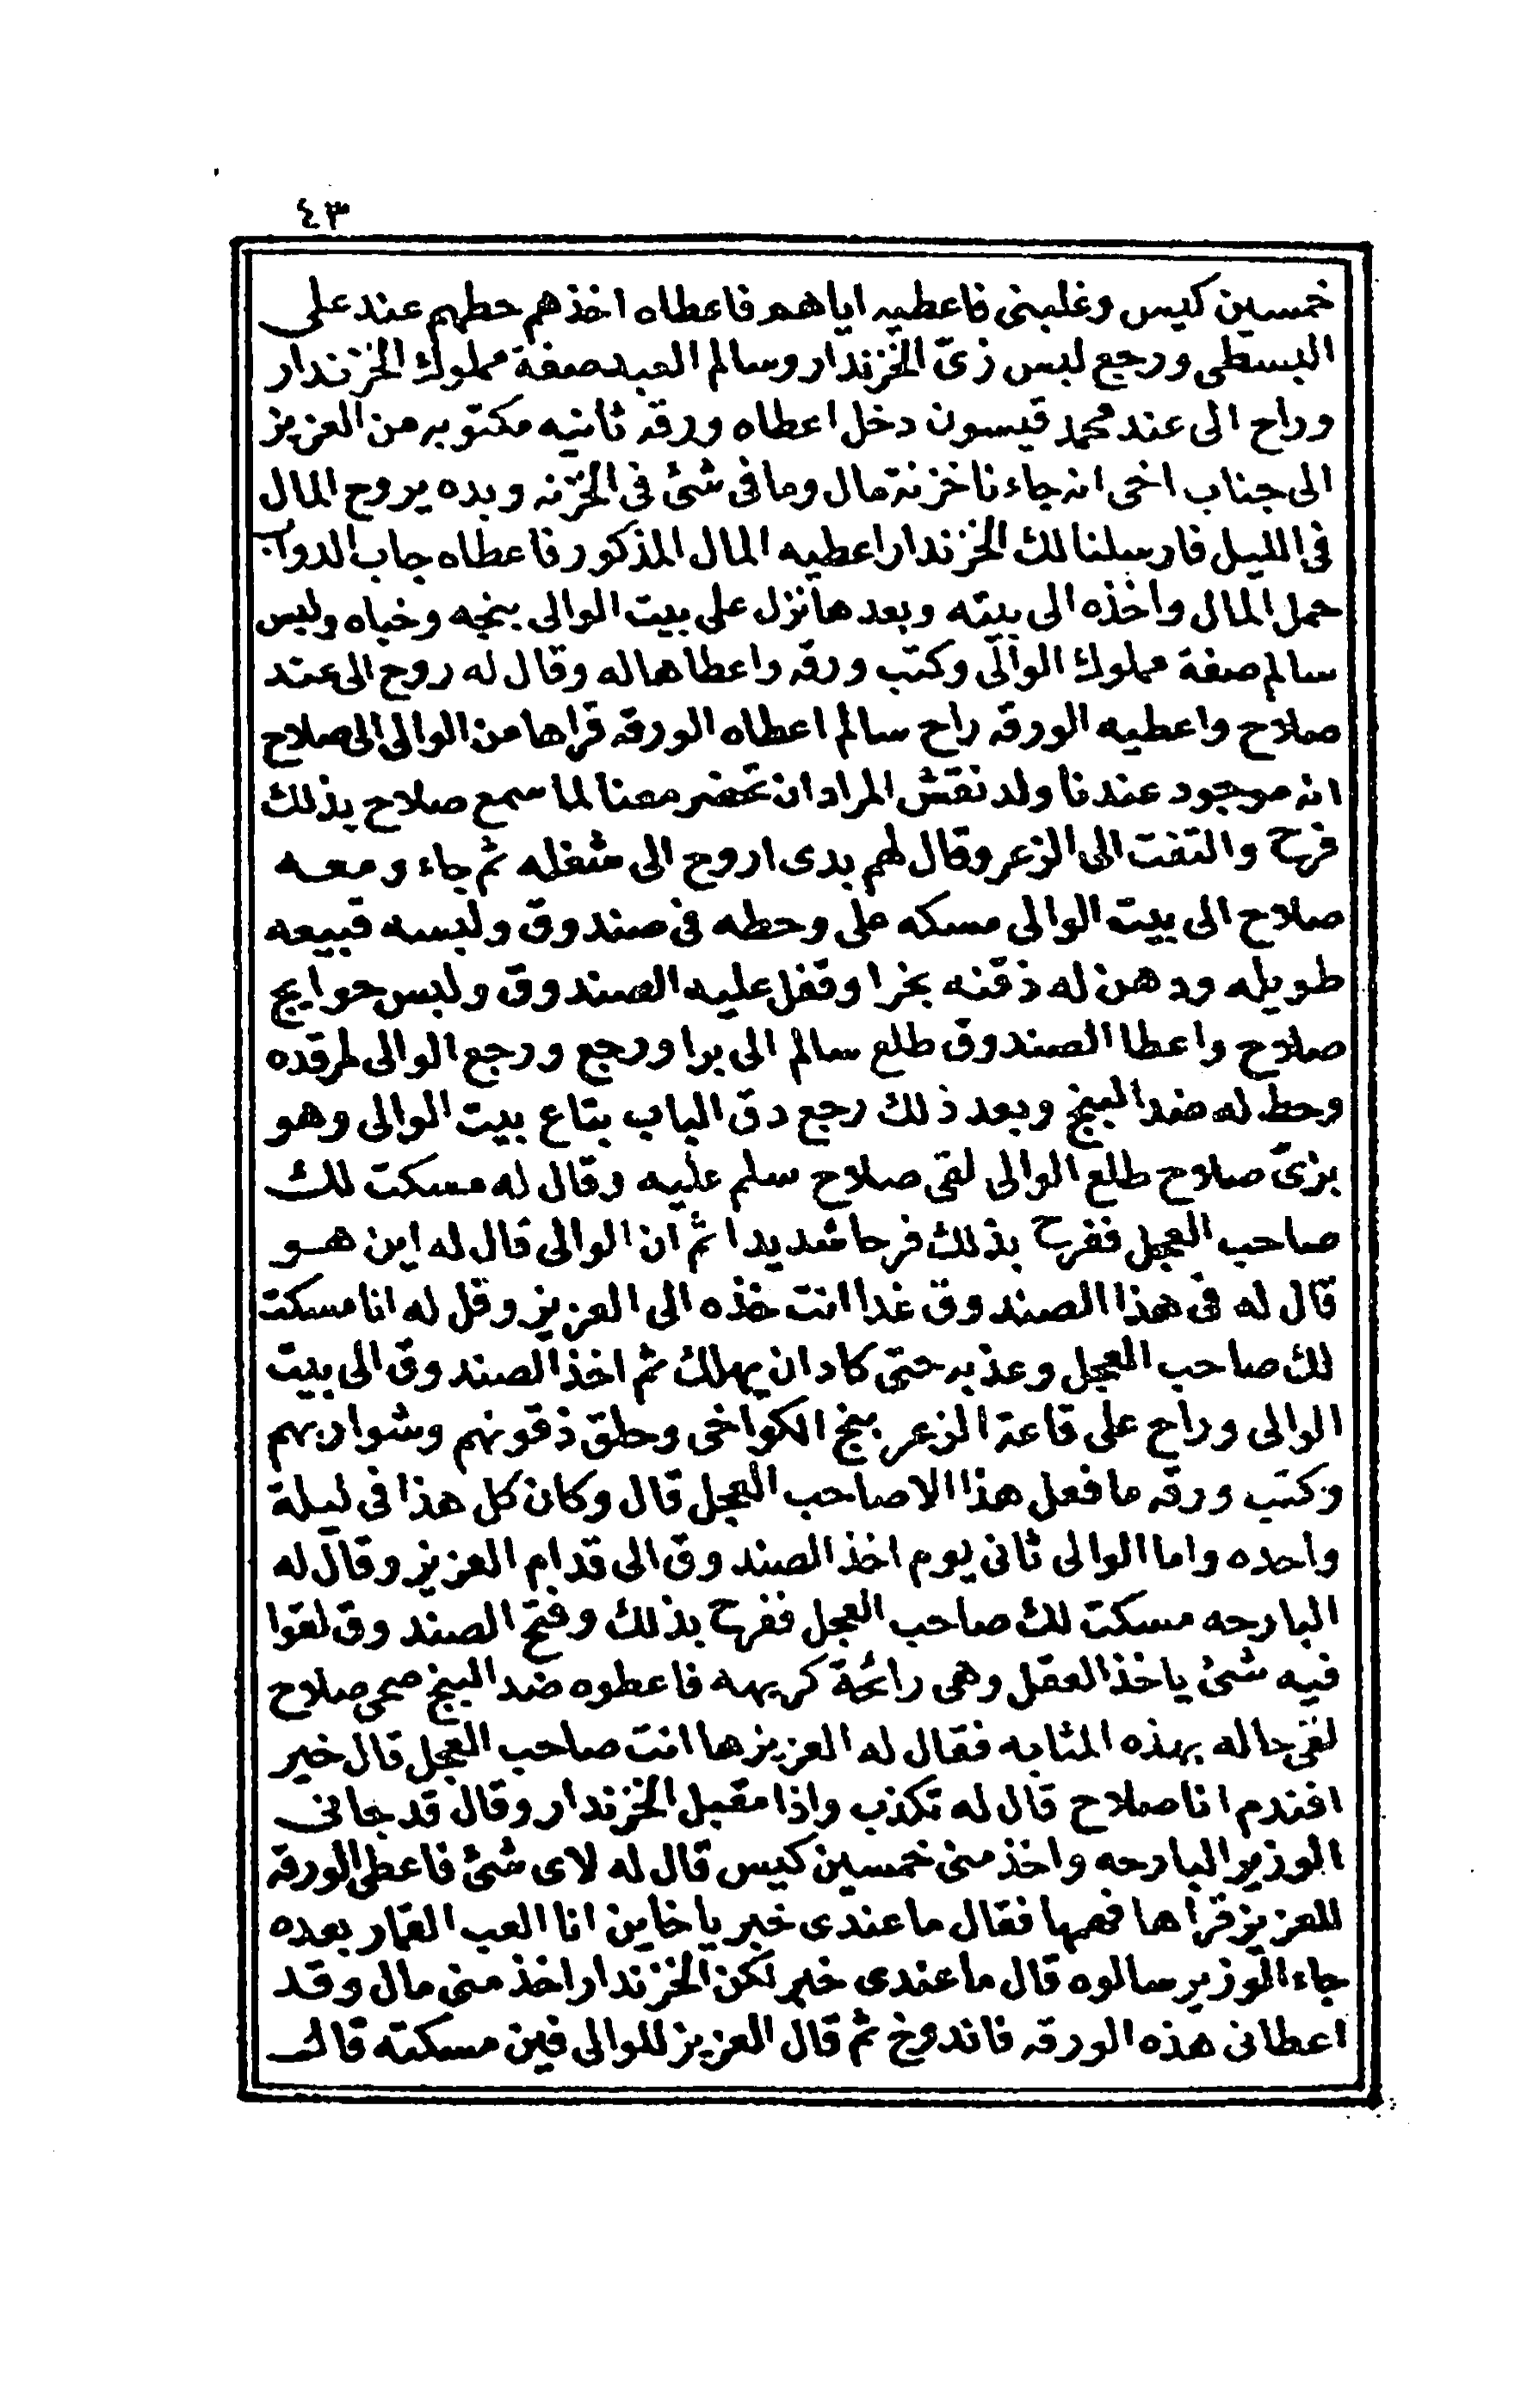 ٤٣
خمسين كيس وغلبنى فاعطيه اياهم فاعطاه اخذهم حطهم عند على
البسطى ورجع لبس زىّ الخزندار وسالم العبد صفة مملوك الخزندار
وراح الى عند محمد قيسون دخل اعطاه ورقه ثانيه مكتوبه من العزيز
الى جناب اخى انه جاءنا خزنة مال وما فى شئ فى الخزنه وبده يروح المال
فى الليل فارسلنا لك الخزندار اعطيه المال المذكور فاعطاه جاب الدواب
حمل المال واخذه الى بيته وبعدها نزل على بيت الوالى بنجه وخباه ولبس
سالم صفة مملوك الوالى وكتب ورقه واعطاها له وقال له روح الى عند
صلاح واعطيه الورقه راح سالم اعطاه الورقه قراها من الوالى الى صلاح
انه موجود عندنا ولد نقش المراد ان تحضر معنا لما سمع صلاح بذلك
فرح والتفت الى الزعر وقال لهم بدى اروح الى شغله ثم جاء ومعه
صلاح الى بيت الوالى مسكه على وحطه فى صندوق ولبسه قبيعه
طويله ودهن له ذقنه بخرا وقفل عليه الصندوق ولبس حوايج
صلاح واعطا الصندوق طلع سالم الى برا ورجع ورجع الوالى لمرقده
وحط له ضد البنج وبعد ذلك رجع دق الباب بتاع بيت الوالى وهو
بزىّ صلاح طلع الوالى لقى صلاح سلم عليه وقال له مسكت لك
صاحب العجل ففرح بذلك فرحا شديدا ثم ان الوالى قال له اين هو
قال له فى هذا الصندوق غدا انت خذه الى العزيز وقل له انا مسكت
لك صاحب العجل وعذبه حتى كاد ان يهلك ثم اخذ الصندوق الى بيت
الوالى وراح على قاعة الزعر بنج الكواخى وحلق ذقونهم وشواربهم
وكتب ورقه ما فعل هذا الا صاحب العجل قال وكان كل هذا فى ليلة
واحده واما الوالى ثانى يوم اخذ الصندوق الى قدام العزيز وقال له
البارحه مسكت لك صاحب العجل ففرح بذلك وفتح الصندوق لقوا
فيه شئ ياخذ العقل وهى رائحة كريهه فاعطوه ضد البنج صحى صلاح
لقى حاله بهذه المثابه فقال له العزيز ها انت صاحب العجل قال خير
افندم انا صلاح قال له تكذب واذا مقبل الخزندار وقال قد جانى
الوزير البارحه واخذ منى خمسين كيس قال له لاى شئ فاعطى الورقه
للعزيز قراها فهمها فقال ما عندى خبر يا خاين انا العب القمار بعده
جاء الوزير سالوه قال ما عندى خبر لكن الخزندار اخذ منى مال وقد
اعطانى هذه الورقه فاندوخ ثم قال العزيز للوالى فين مسكته قال